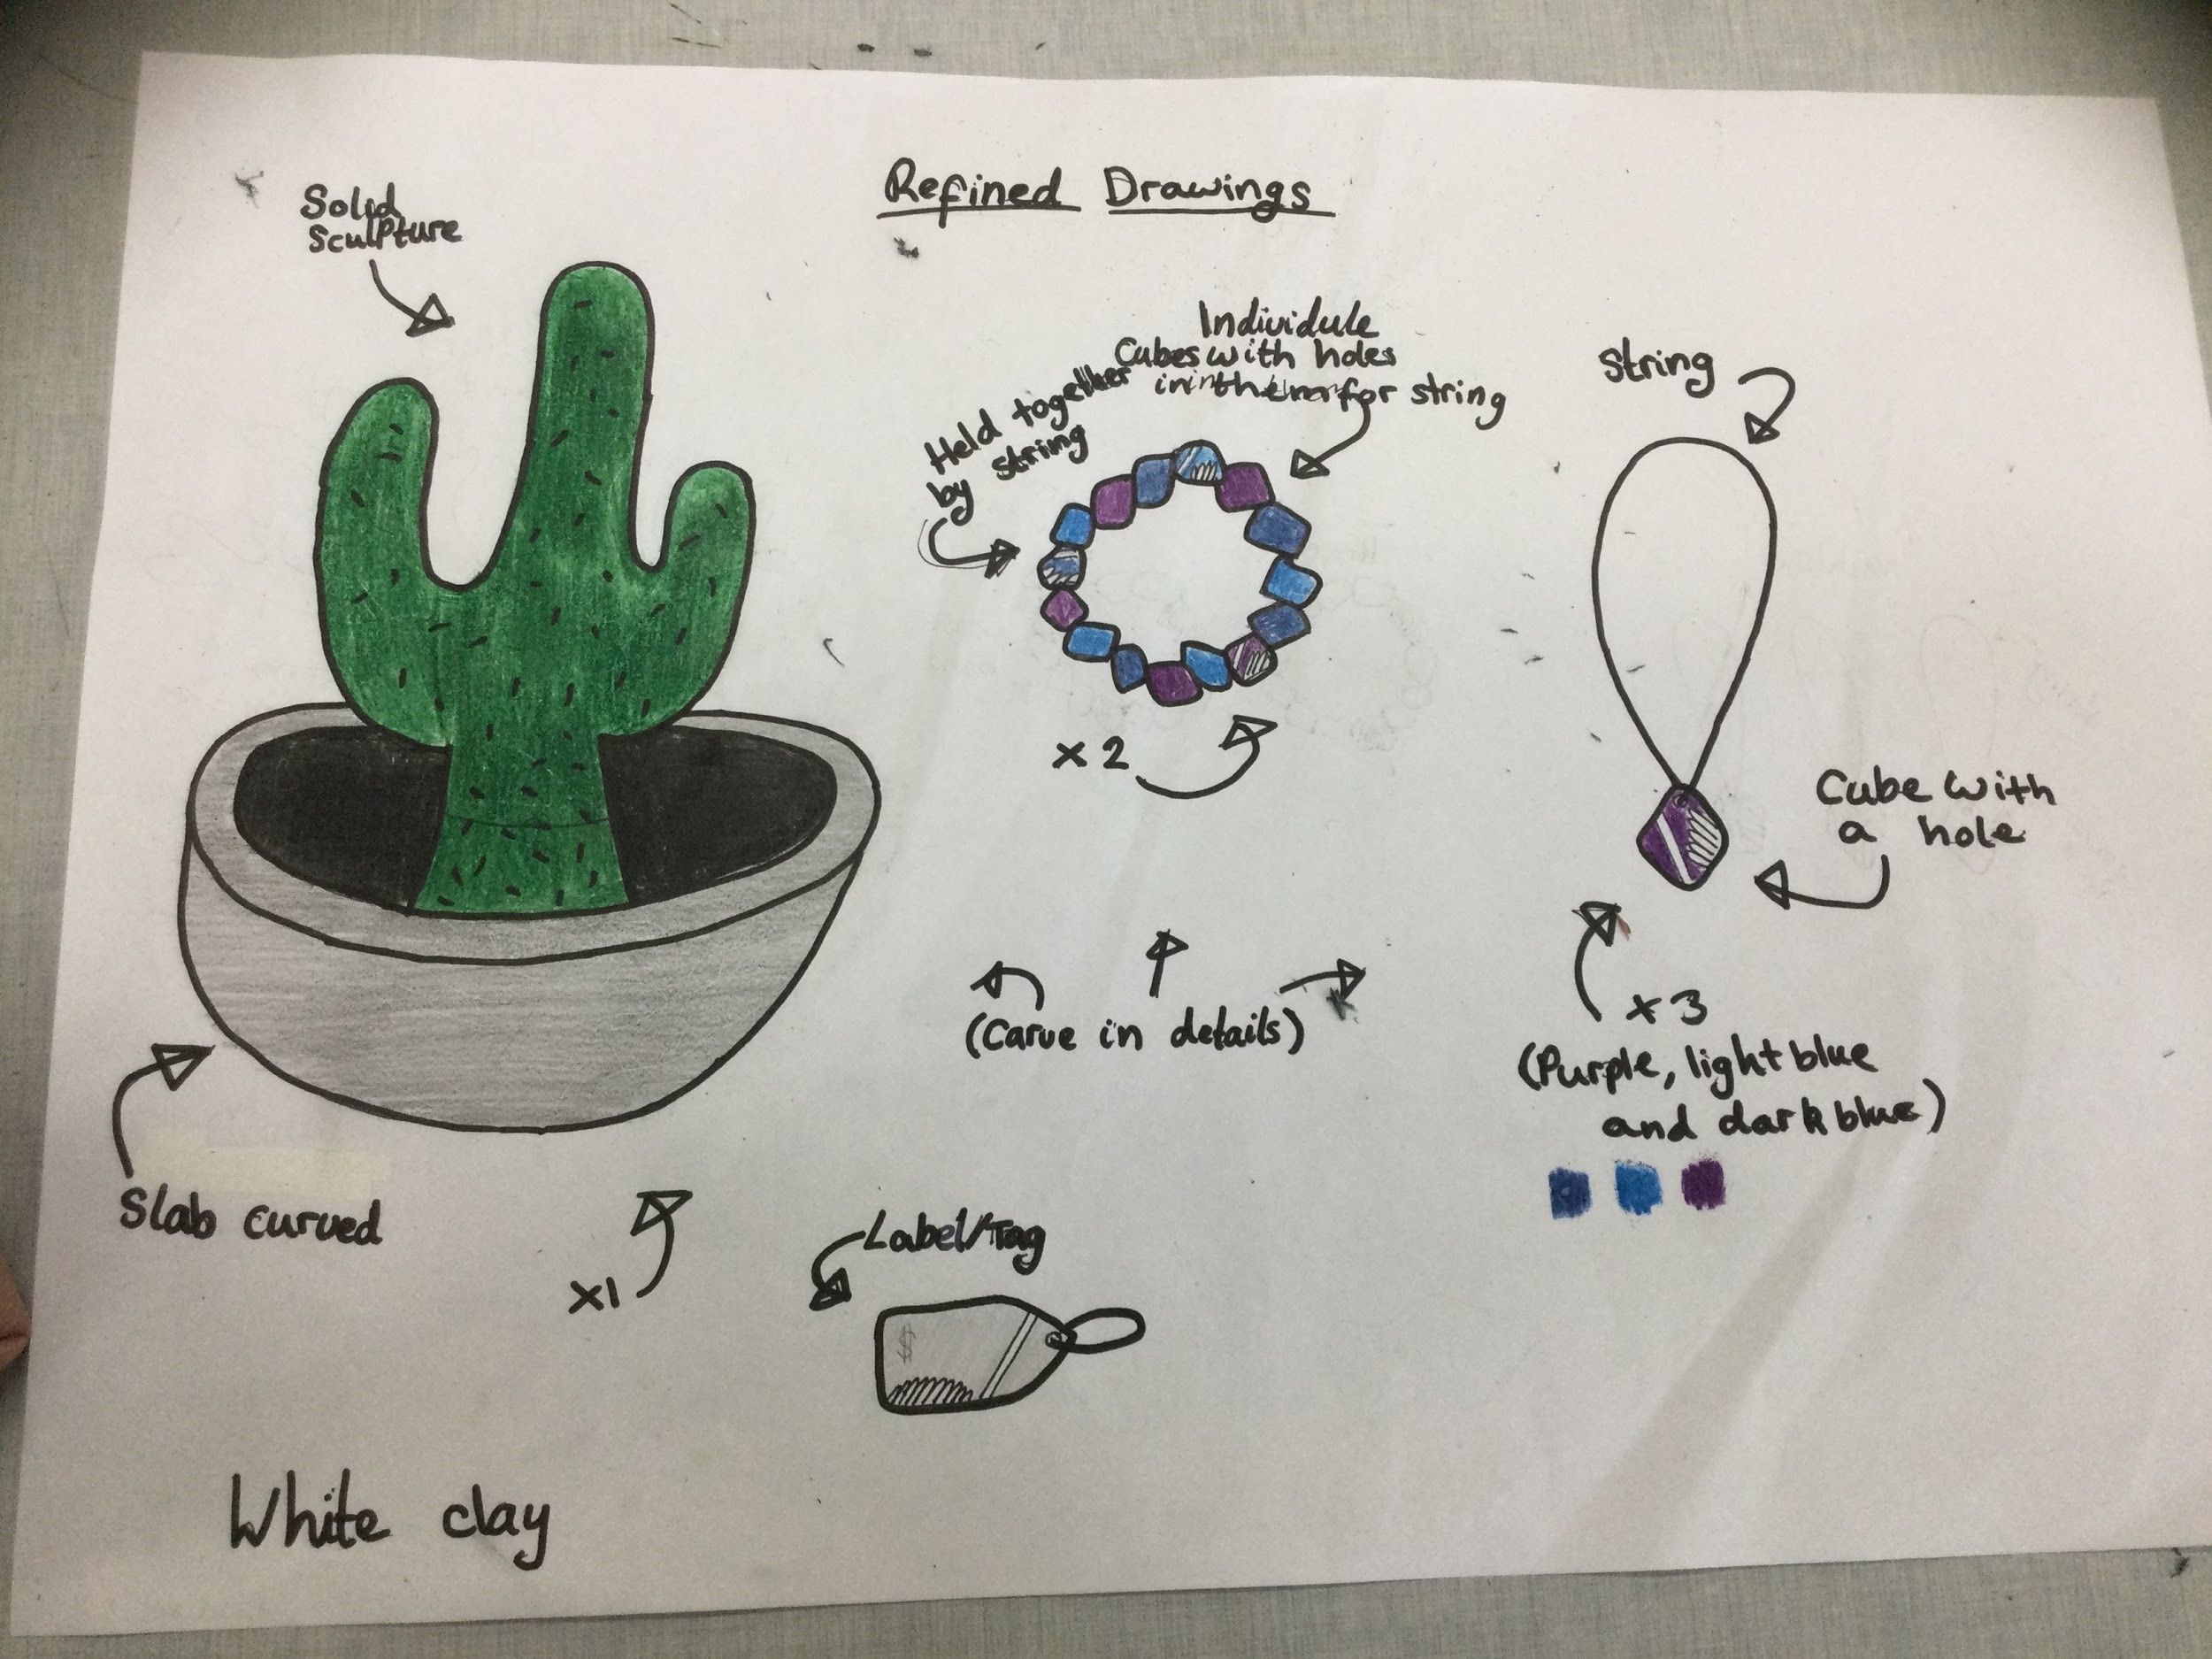 Refined Drawings
Solid
Sculpture
Individule
Cubes with holes
in them for string
Held together
by string
String
x 2
Cube with
a hole
(Carve in details)
x 3
(Purple, light blue
and dark blue)
Slab curved
x1
Label/Tag
$
White clay